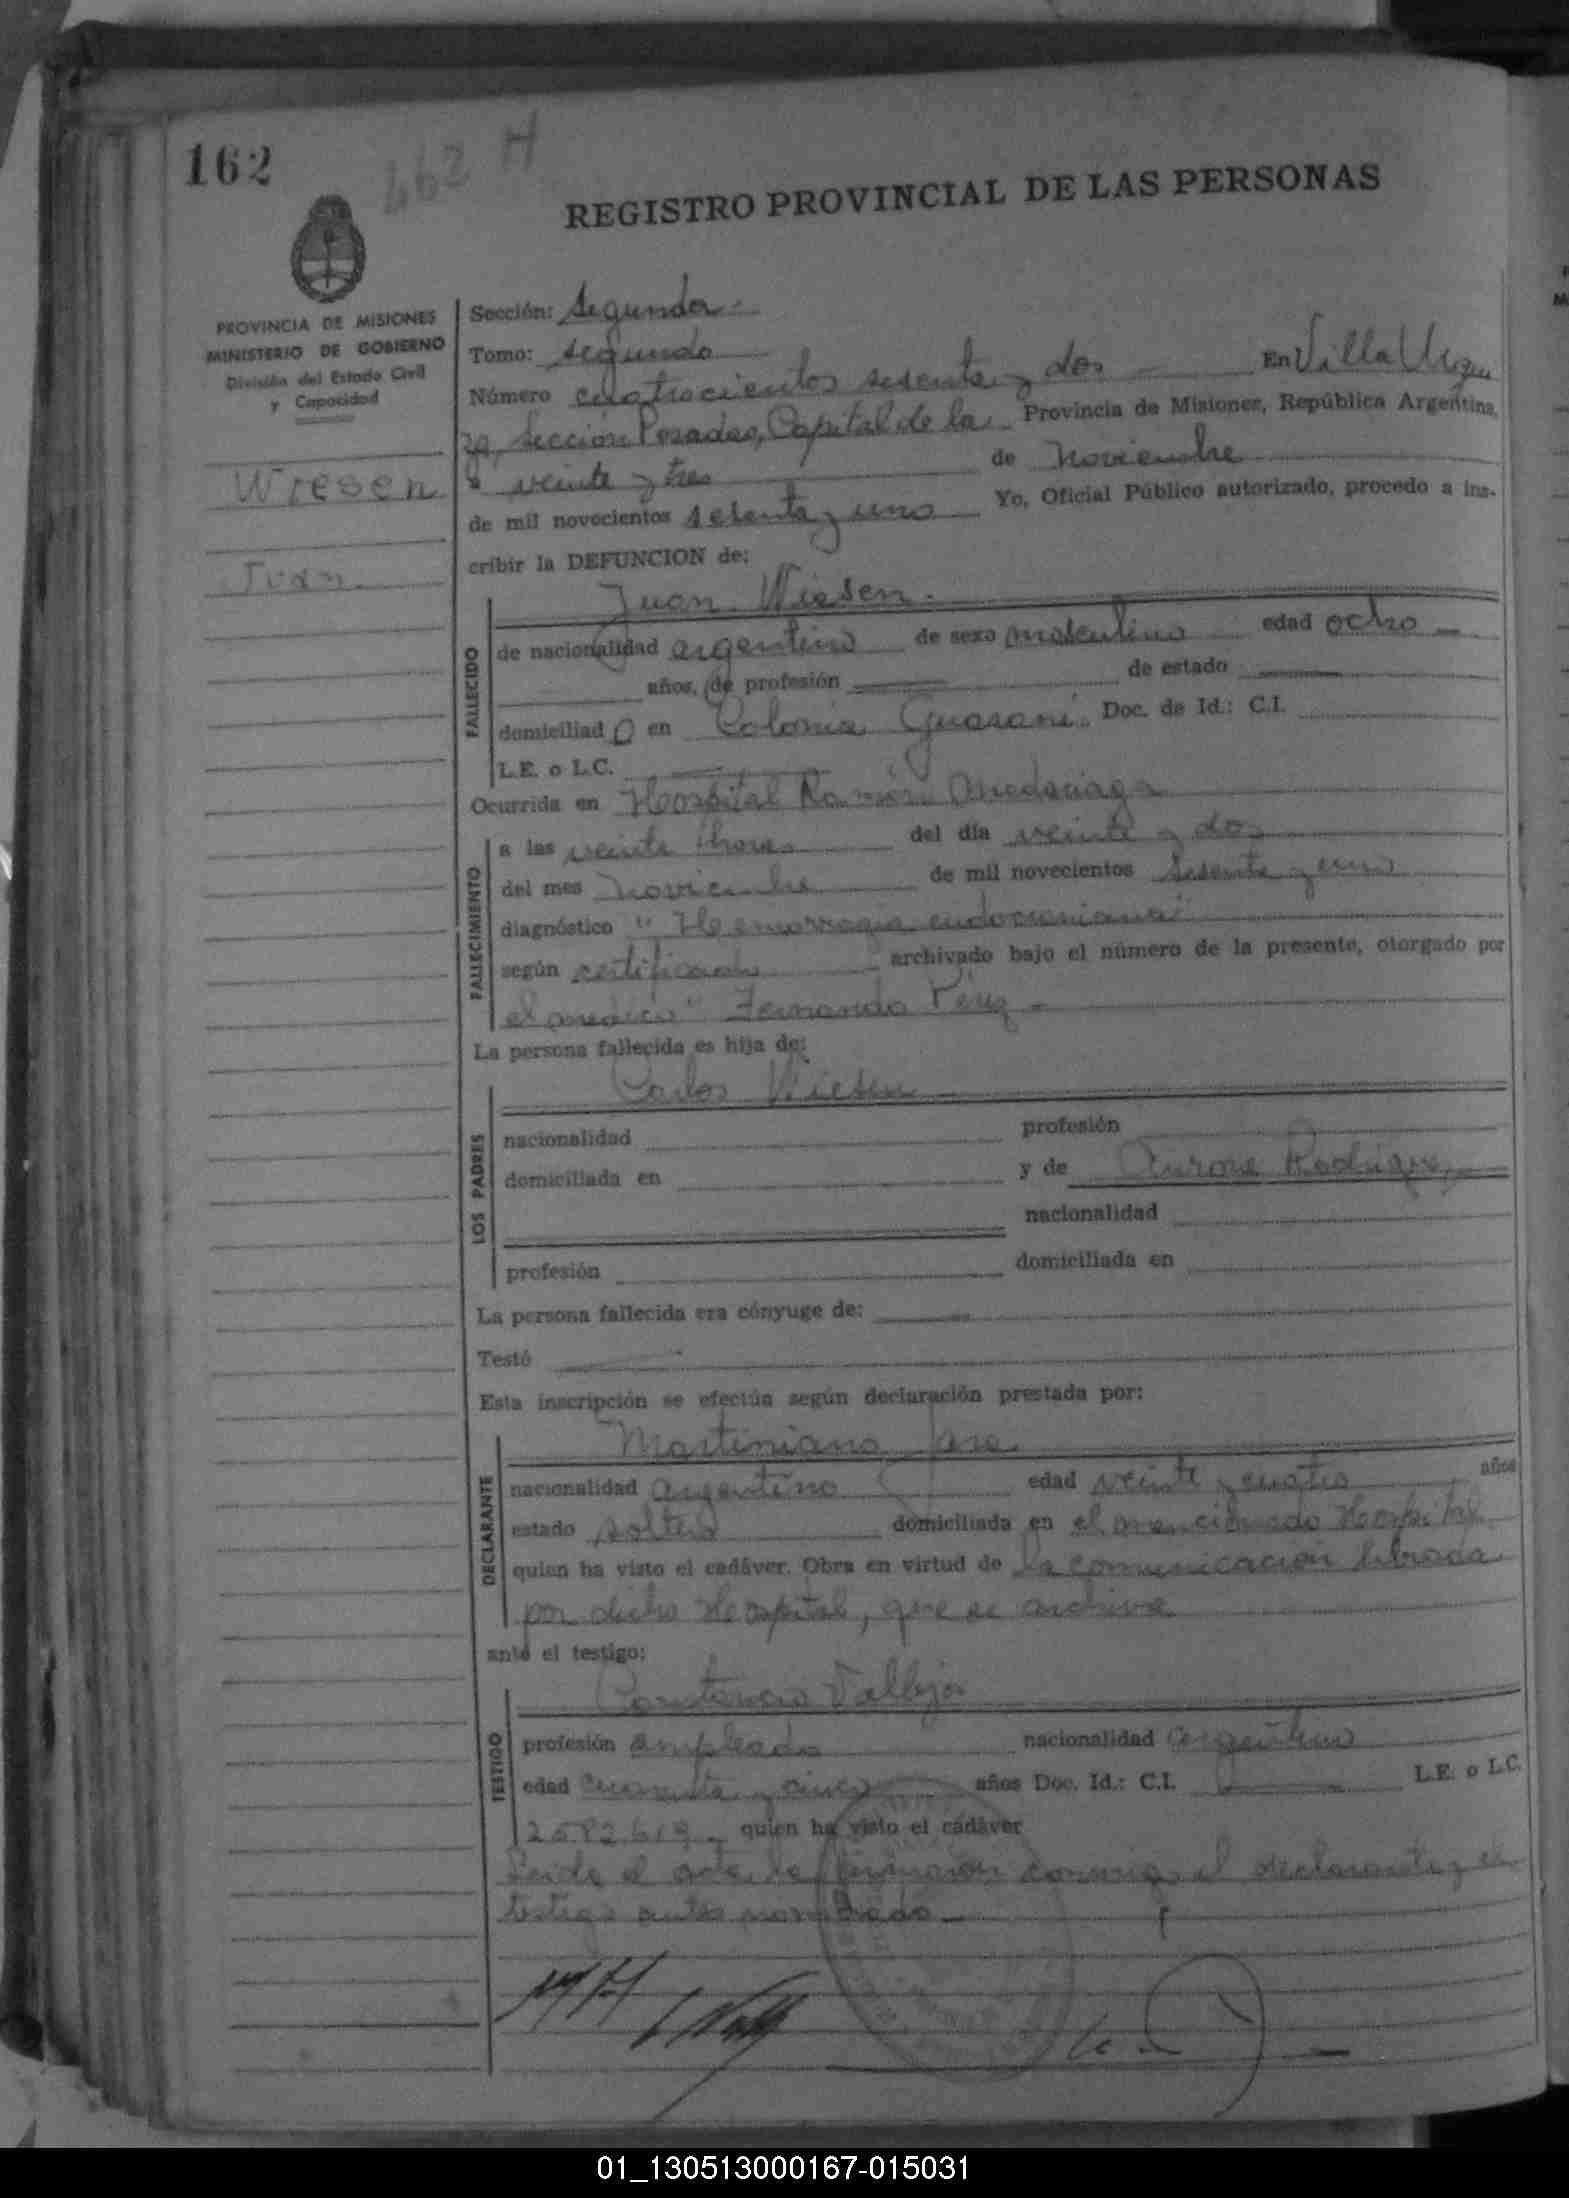 162
462 H
REGISTRO PROVINCIAL DE LAS PERSONAS
PROVINCIA DE MISIONES
MINISTERIO DE GOBIERNO
División del Estado Civil
y Capacidad
Wiesen
Juan.
Sección: Segunda
Tomo: segundo
Número cuatrocientos sesenta y dos En Villa Urqui
za, Sección Posadas, Capital de la Provincia de Misiones, República Argentina,
a veinte y tres de Noviembre
de mil novecientos sesenta y uno Yo, Oficial Público autorizado, procedo a ins-
cribir la DEFUNCION de:
Juan Wiesen.
FALLECIDO
de nacionalidad argentino de sexo masculino edad ocho
años, de profesión de estado
domiciliado en Colonia Guaraní. Doc. de Id.: C.I.
L.E. o L.C.
Ocurrida en Hospital Ramón Madariaga
FALLECIMIENTO
a las veinte horas del día veinte y dos
del mes Noviembre de mil novecientos sesenta y uno
diagnóstico "Hemorragia endocraniana"
según certificado archivado bajo el número de la presente, otorgado por
el médico Fernando Pérez
La persona fallecida es hija de:
Carlos Wiesen
LOS PADRES
nacionalidad profesión
domiciliada en y de Aurora Rodríguez
nacionalidad
profesión domiciliada en
La persona fallecida era cónyuge de:
Testó
Esta inscripción se efectúa según declaración prestada por:
Martiniano Jara
DECLARANTE
nacionalidad argentino edad veinte y cuatro años
estado soltero domiciliada en el mencionado Hospital
quien ha visto el cadáver. Obra en virtud de la comunicación librada
por dicho Hospital, que se archiva
ante el testigo:
Constancio Vallejos
TESTIGO
profesión empleado nacionalidad argentino
edad cuarenta y cinco años Doc. Id.: C.I. L.E. o L.C.
2582619 quien ha visto el cadáver
Leída el acta, la firmaron conmigo el declarante y el
testigo antes nombrado
01_130513000167-015031